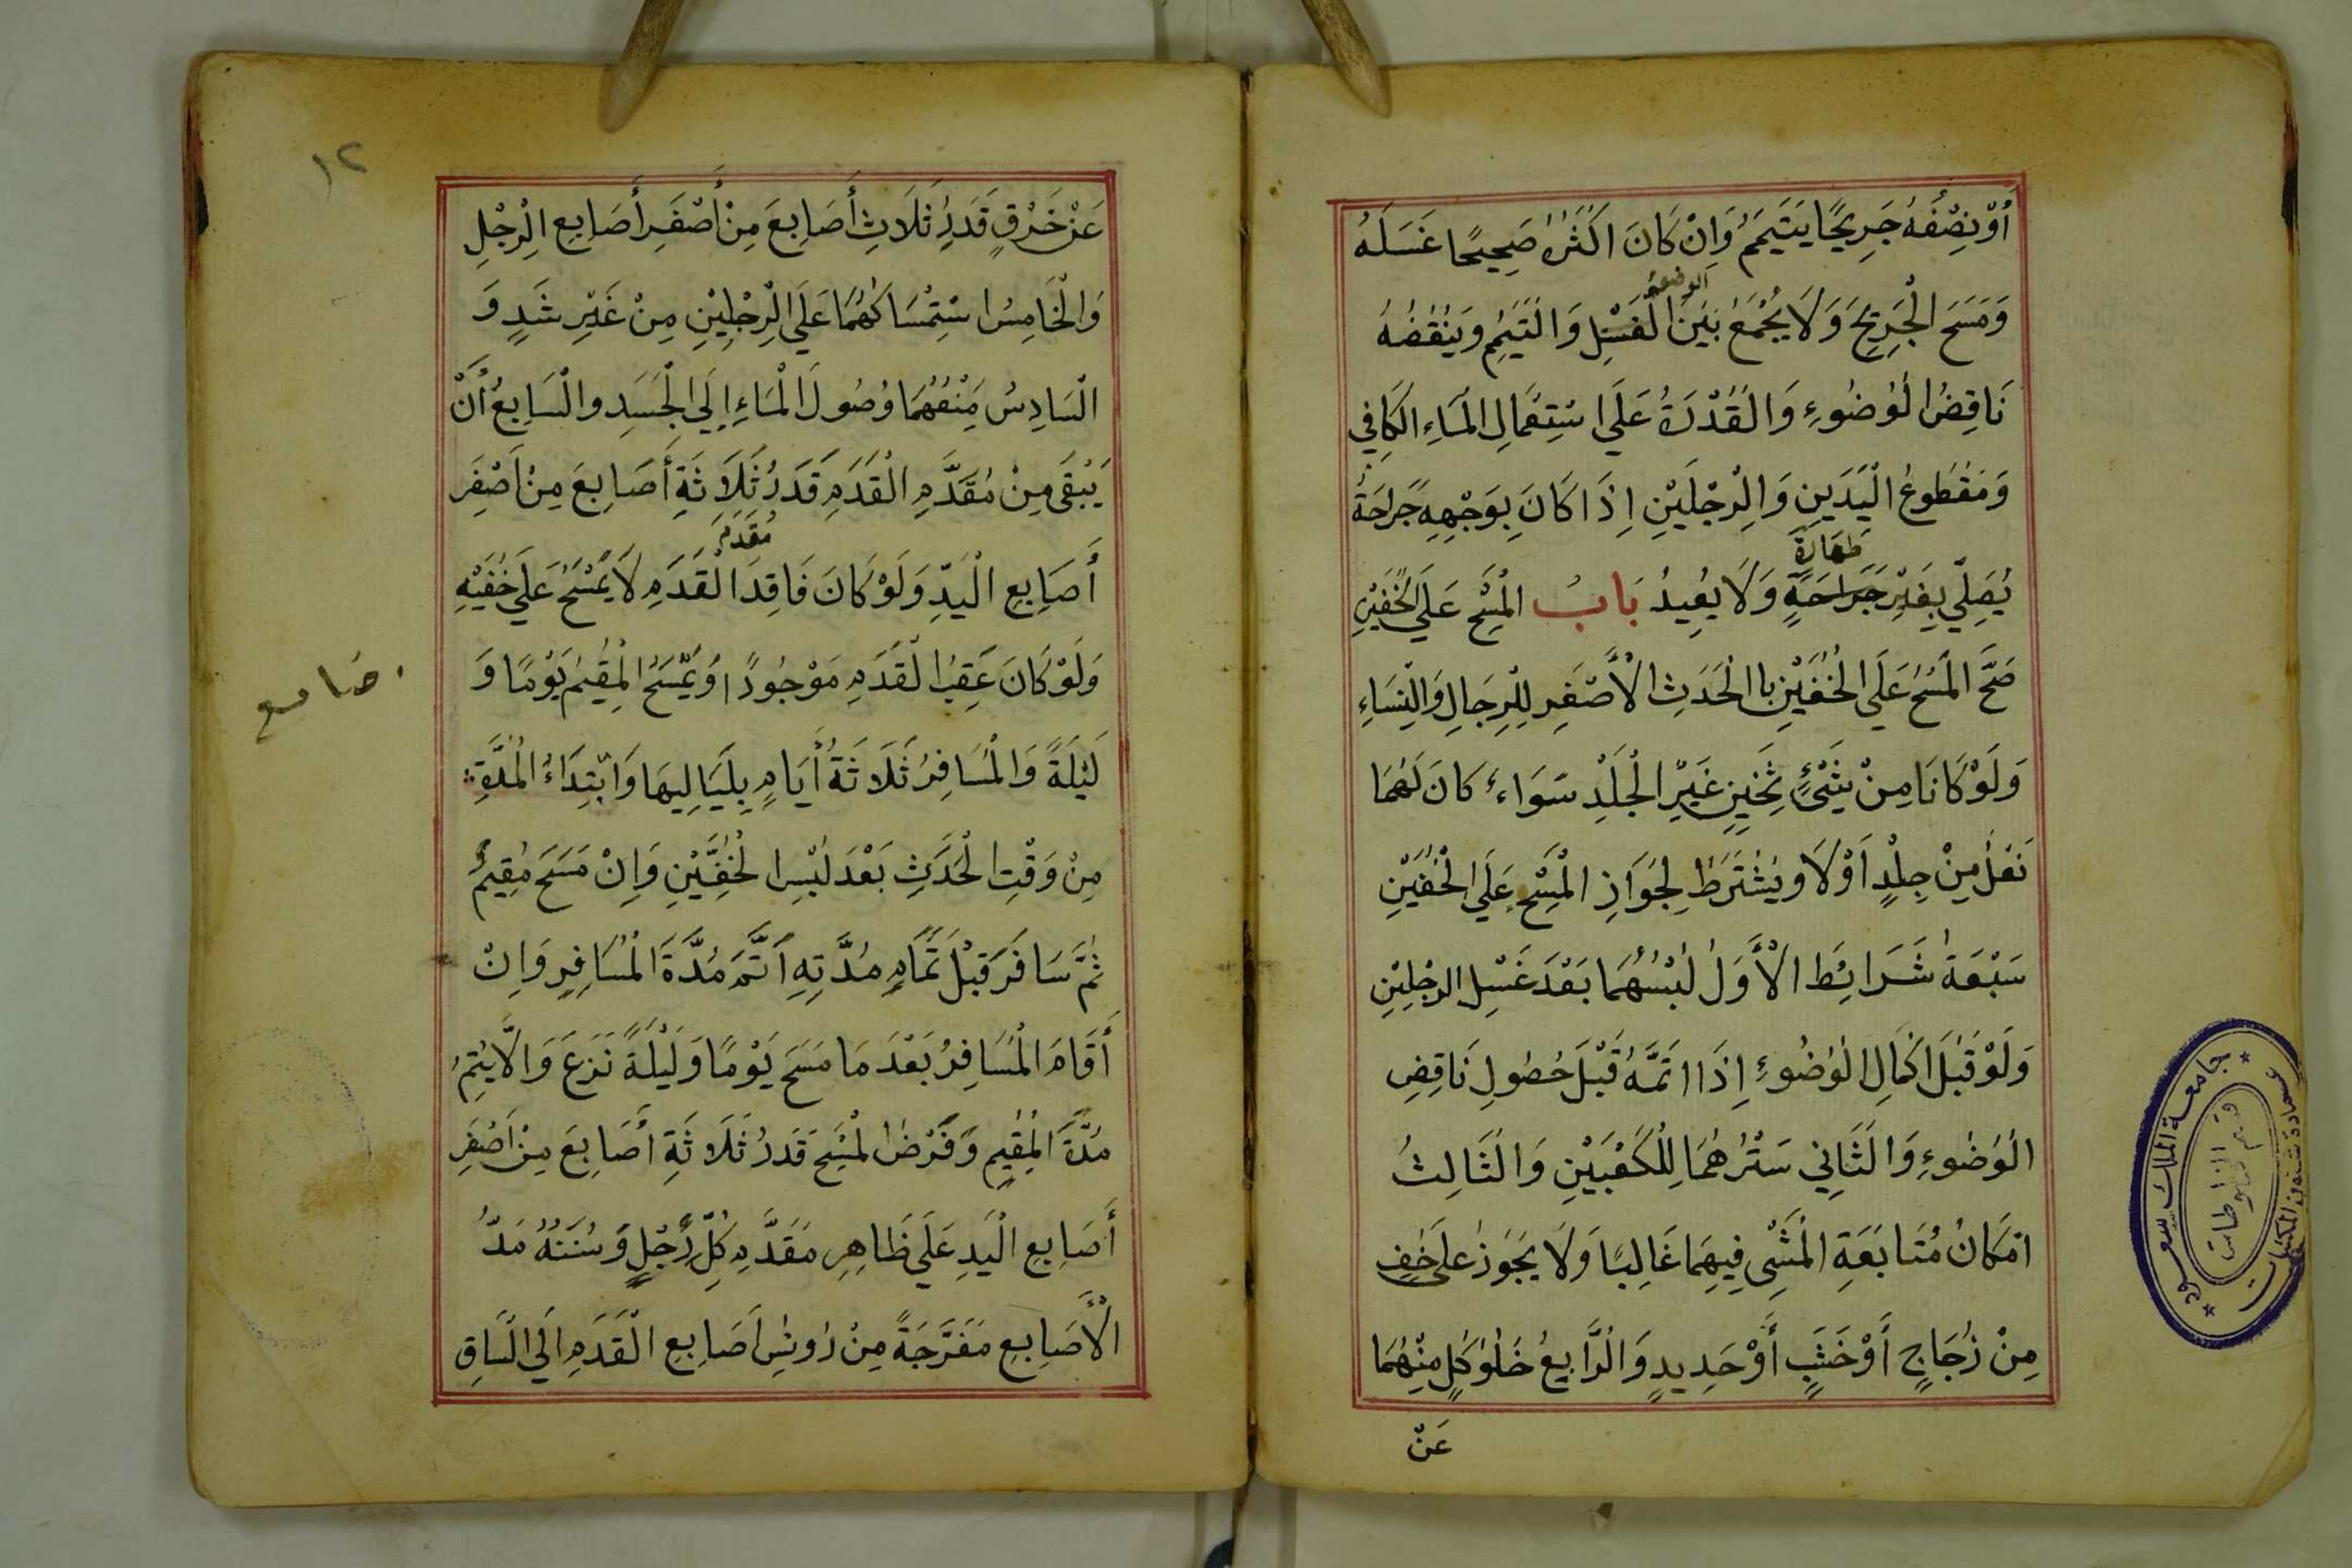 أَوْ نِصْفُهُ جَرِيحًا يَتَيَمَّمُ وَاِنْ كَانَ اَكْثَرُهُ صَحِيحًا غَسَلَهُ
الوضوء
وَمَسَحَ الْجَرِيحَ وَلَا يُجْمَعُ بَيْنَ الْغَسْلِ وَالتَّيَمُّمِ وَيَنْقُضُهُ
نَاقِضُ الْوُضُوءِ وَالْقُدْرَةُ عَلَى اسْتِعْمَالِ الْمَاءِ الْكَافِي
وَمَقْطُوعُ الْيَدَيْنِ وَالرِّجْلَيْنِ اِذَا كَانَ بِوَجْهِهِ جَرَاحَةٌ
طَهَارَةٍ
يُصَلِّي بِغَيْرِ جَرَاحَةٍ وَلَا يُعِيدُ بَابُ الْمَسْحِ عَلَى الْخُفَّيْنِ
صَحَّ الْمَسْحُ عَلَى الْخُفَّيْنِ باالْحَدَثِ الْأَصْغَرِ لِلرِّجَالِ وَالنِّسَاءِ
وَلَوْ كَانَا مِنْ شَيْءٍ ثَخِينٍ غَيْرِ الْجِلْدِ سَوَاءٌ كَانَ لَهُمَا
نَعْلٌ مِنْ جِلْدٍ اَوْ لَا وَيُشْتَرَطُ لِجَوَازِ الْمَسْحِ عَلَى الْخُفَّيْنِ
سَبْعَةُ شَرَائِطَ الْأَوَّلُ لُبْسُهُمَا بَعْدَ غَسْلِ الرِّجْلَيْنِ
وَلَوْ قَبْلَ اكْمَالِ الْوُضُوءِ اِذَا اتَمَّهُ قَبْلَ حُصُولِ نَاقِضِ
الْوُضُوءِ وَالثَّانِي سَتْرُهُمَا لِلْكَعْبَيْنِ وَالثَّالِثُ
امْكَانُ مُتَابَعَةِ الْمَشْيِ فِيهِمَا غَالِبًا وَلَا يَجُوزُ عَلَى خُفٍّ
مِنْ زُجَاجٍ أَوْ خَشَبٍ أَوْ حَدِيدٍ وَالرَّابِعُ خُلُوُّ كُلٍّ مِنْهُمَا
عَنْ
جامعة الملك سعود
عمادة شئون المكتبات
قسم المخطوطات
١٢
عَنْ خَرْقٍ قَدَرُ ثَلَاثِ أَصَابِعَ مِنْ أَصْغَرِ أَصَابِعِ الرِّجْلِ
وَالْخَامِسُ اسْتِمْسَاكُهُمَا عَلَى الرِّجْلَيْنِ مِنْ غَيْرِ شَدٍّ وَ
السَّادِسُ مَنْعُهُمَا وُصُولَ الْمَاءِ إِلَى الْجَسَدِ والسَّابِعُ أَنْ
يَبْقَى مِنْ مُقَدَّمِ الْقَدَمِ قَدَرُ ثَلَاثَةِ أَصَابِعَ مِنْ اَصْغَرِ
مُقَدَّمِ
أَصَابِعِ الْيَدِّ وَلَوْ كَانَ فَاقِدَ الْقَدَمِ لَا يَمْسَحُ عَلَى خُفَّيْهِ
وَلَوْ كَانَ عَقِبُ الْقَدَمِ مَوْجُودًا وَيَمْسَحُ الْمُقِيمُ يَوْمًا وَ
لَيْلَةً وَالْمُسَافِرُ ثَلَاثَةَ أَيَامٍ بِلَيَالِيهَا وَابْتِدَاءُ الْمُدَّةِ
مِنْ وَقْتِ الْحَدَثِ بَعْدَ لُبْسِ الْخُفَّيْنِ وَاِنْ مَسَحَ مُقِيمٌ
ثُمَّ سَافَرَ قَبْلَ تَمَامِ مُدَّتِهِ اَتَّمَ مُدَّةَ الْمُسَافِرِ وَاِنْ
أَقَامَ الْمُسَافِرُ بَعْدَ مَا مَسَحَ يَوْمًا وَلَيْلَةً نَزَعَ وَالَّا يُتِمُّ
مُدَّةَ الْمُقِيمِ وَفَرْضُ الْمَسْحِ قَدَرُ ثَلَاثَةِ أَصَابِعَ مِنْ اَصْغَرِ
أَصَابِعِ الْيَدِ عَلَى ظَاهِرِ مُقَدَّمِ كُلِّ رِجْلٍ وَسُنَنُهُ مَدُّ
الْأَصَابِعِ مُفَرَّجَةً مِنْ رُوسِ اَصَابِعِ الْقَدَمِ اَلَى السَّاقِ